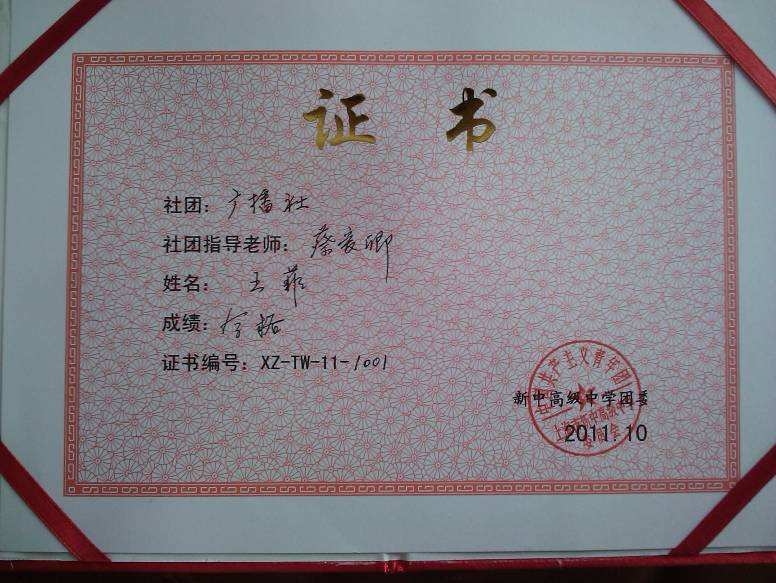 证 书
社团：广播社
社团指导老师：蔡亥卿
姓名：王菲
成绩：合格
证书编号：XZ-TW-11-1001
新中高级中学团委
2011.10
中国共产主义青年团
上海市新中高级中学
委员会